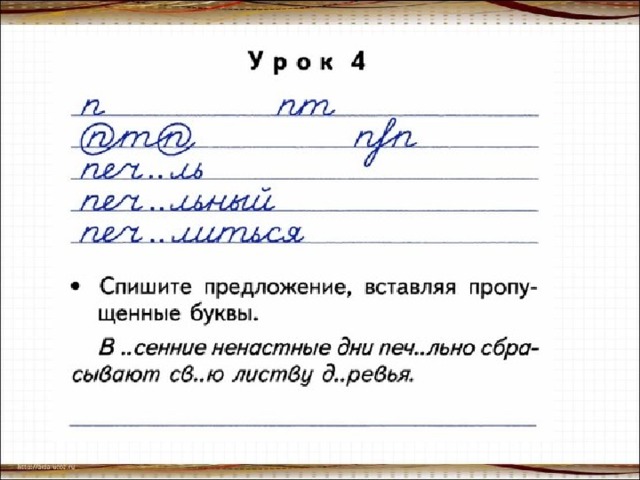 Урок 4
п пт
птп пfп
печ..ль
печ..льный
печ..литься
• Спишите предложение, вставляя пропу-
щенные буквы.
В ..сенние ненастные дни печ..льно сбра-
сывают св..ю листву д..ревья.